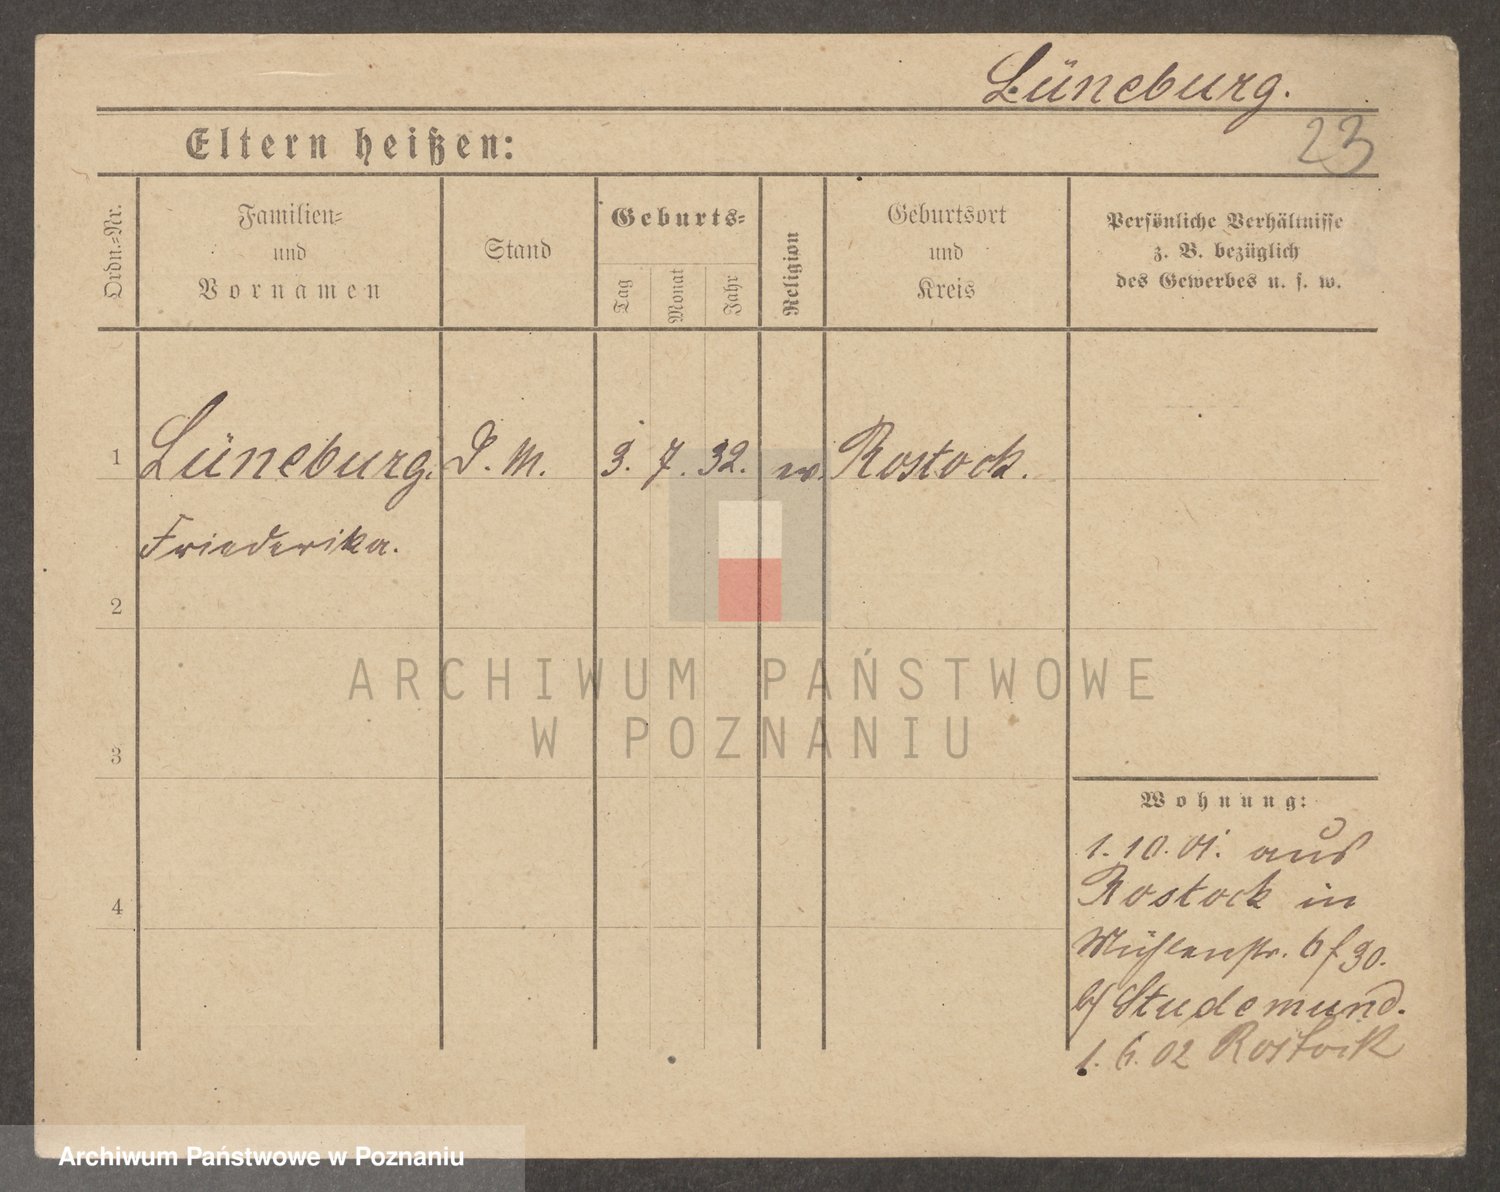 Lüneburg.
23
Eltern heißen:
Ordn.=Nr.
Familien=
und
Vornamen
Stand
Geburts=
Tag
Monat
Jahr
Religion
Geburtsort
und
Kreis
Persönliche Verhältnisse
z. B. bezüglich
des Gewerbes u. s. w.
1 Lüneburg. D. M. 3. 7. 32. ev. Rostock.
Friederika.
2
3
4
Wohnung:
1. 10. 01. aus
Rostock in
Mühlenstr. 6 f 30.
b/ Studemund.
1. 6. 02 Rostock
ARCHIWUM PAŃSTWOWE
W POZNANIU
Archiwum Państwowe w Poznaniu